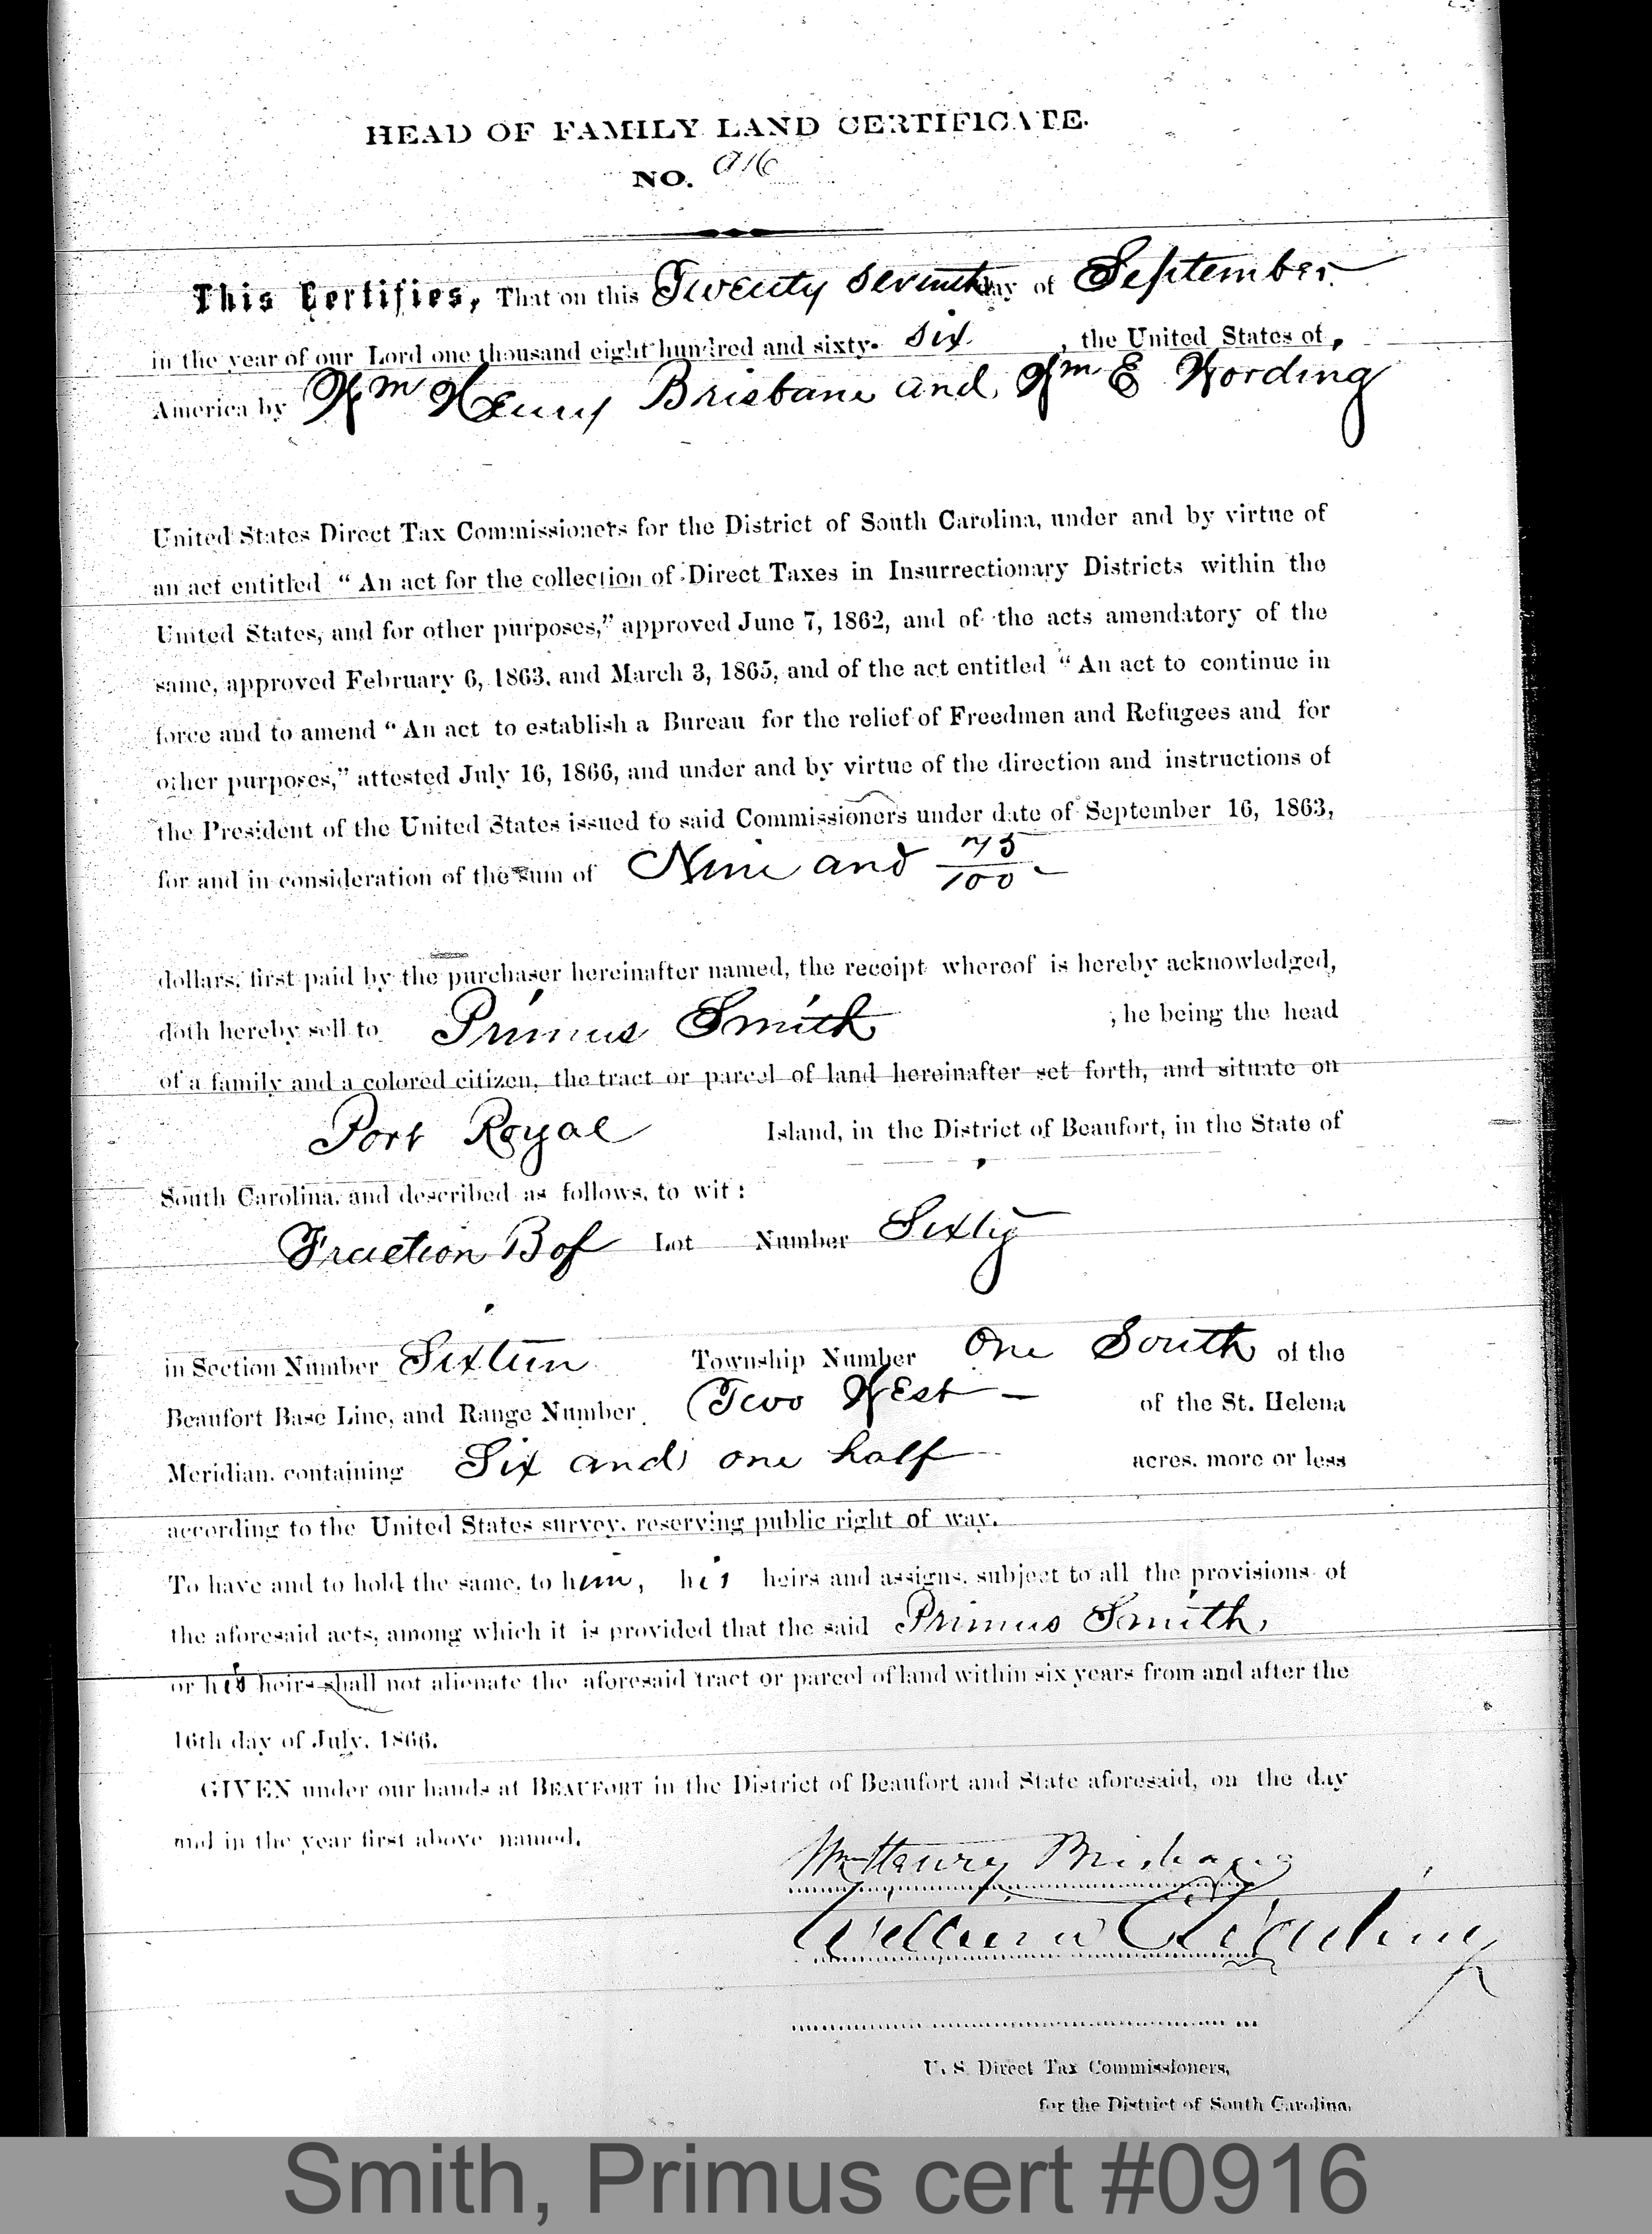 HEAD OF FAMILY LAND CERTIFICATE.
NO. 916
This Certifies, That on this Twenty seventh day of September
in the year of our Lord one thousand eight hundred and sixty- six , the United States of
America by Wm Henry Brisbane and Wm E Wording
United States Direct Tax Commissioners for the District of South Carolina, under and by virtue of
an act entitled “ An act for the collection of Direct Taxes in Insurrectionary Districts within the
United States, and for other purposes,” approved June 7, 1862, and of the acts amendatory of the
same, approved February 6, 1863, and March 3, 1865, and of the act entitled “ An act to continue in
force and to amend “ An act to establish a Bureau for the relief of Freedmen and Refugees and for
other purposes,” attested July 16, 1866, and under and by virtue of the direction and instructions of
the President of the United States issued to said Commissioners under date of September 16, 1863,
for and in consideration of the sum of Nine and 75/100
dollars, first paid by the purchaser hereinafter named, the receipt whereof is hereby acknowledged,
doth hereby sell to Primus Smith , he being the head
of a family and a colored citizen, the tract or parcel of land hereinafter set forth, and situate on
Port Royal Island, in the District of Beaufort, in the State of
South Carolina, and described as follows, to wit :
Fraction B of Lot Number Sixty
in Section Number Sixteen Township Number One South of the
Beaufort Base Line, and Range Number Two West — of the St. Helena
Meridian, containing Six and one half acres, more or less
according to the United States survey, reserving public right of way.
To have and to hold the same, to him, his heirs and assigns, subject to all the provisions of
the aforesaid acts, among which it is provided that the said Primus Smith,
or his heirs shall not alienate the aforesaid tract or parcel of land within six years from and after the
16th day of July, 1866.
GIVEN under our hands at BEAUFORT in the District of Beaufort and State aforesaid, on the day
and in the year first above named.
Wm Henry Brisbane
William E Wording
U. S. Direct Tax Commissioners,
for the District of South Carolina.
Smith, Primus cert #0916